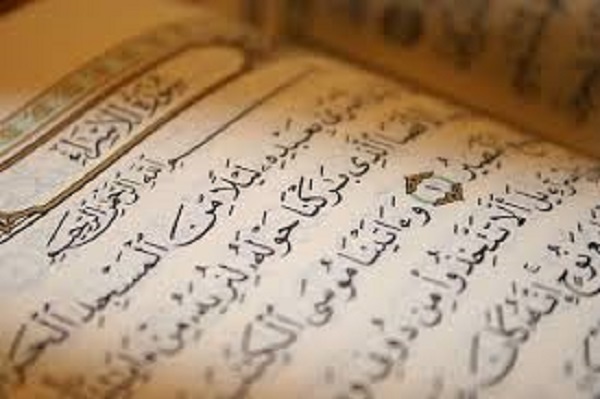 سُورَةُ الْإِسْرَاءِ
بِسْمِ اللَّهِ الرَّحْمَٰنِ الرَّحِيمِ
أَسْرَىٰ بِعَبْدِهِ لَيْلًا مِّنَ الْمَسْجِدِ الْحَرَ
الْأَقْصَا الَّذِي بَٰرَكْنَا حَوْلَهُ لِنُرِيَهُ مِنْ ءَايَٰتِ
الْبَصِيرُ ١ وَءَاتَيْنَا مُوسَى الْكِتَٰبَ
ءِيلَ أَلَّا تَتَّخِذُوا مِن دُونِي وَ
مَعَ نُوحٍ إِنَّهُ كَانَ